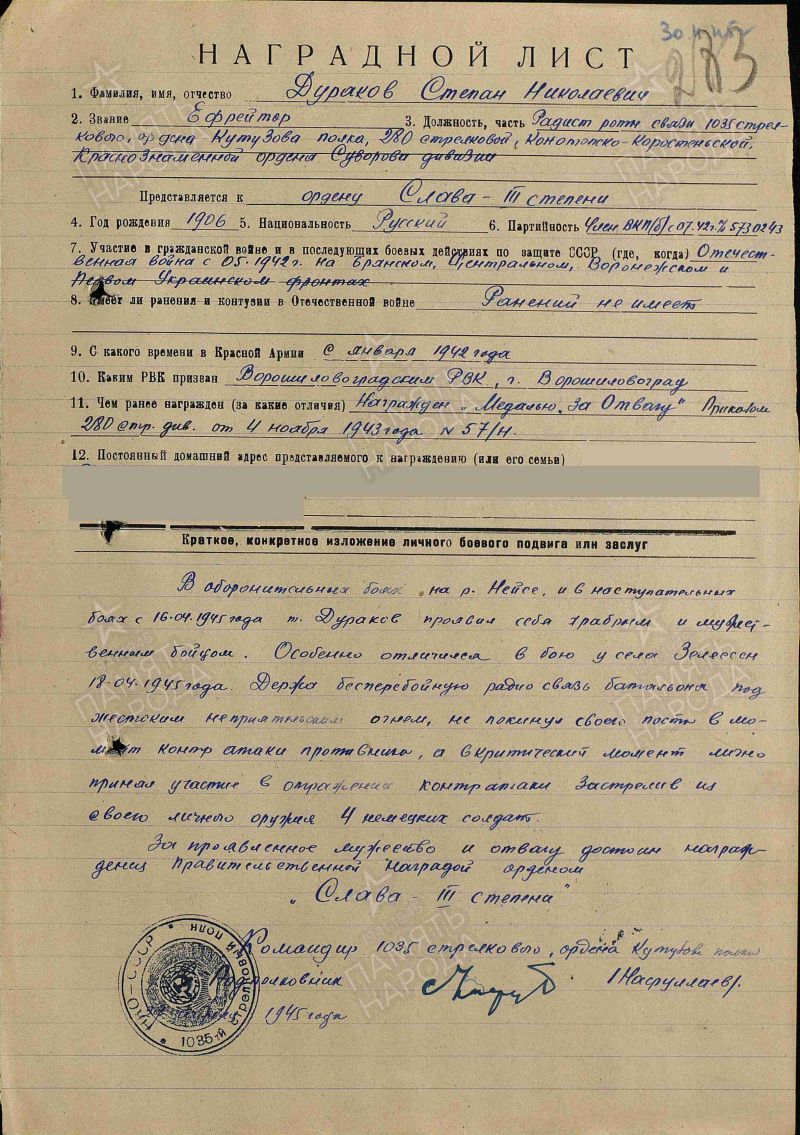 283
НАГРАДНОЙ ЛИСТ
1. Фамилия, имя, отчество Дураков Степан Николаевич
2. Звание Ефрейтор 3. Должность, часть Радист роты связи 1035 стрел-
кового, ордена Кутузова полка, 280 стрелковой, Конотопско-Коростеньской,
Краснознаменной ордена Суворова дивизии
Представляется к ордену Слава - III степени
4. Год рождения 1906 5. Национальность Русский 6. Партийность Член ВКП(б) с 07.42 г. № 5730243
7. Участие в гражданской войне и в последующих боевых действиях по защите СССР (где, когда) Отечест-
венная война с 05.1942 г. на Брянском, Центральном, Воронежском и
Первом Украинском фронтах
8. Имеет ли ранения и контузии в Отечественной войне Ранений не имеет
9. С какого времени в Красной Армии С января 1942 года
10. Каким РВК призван Ворошиловградским РВК, г. Ворошиловоград
11. Чем ранее награжден (за какие отличия) Награжден „Медалью за Отвагу" Приказом
280 стр. див. от 4 ноября 1943 года № 57/н.
12. Постоянный домашний адрес представляемого к награждению (или его семьи)
Краткое, конкретное изложение личного боевого подвига или заслуг
В оборонительных боях на р. Нейсе, и в наступательных
боях с 16.04.1945 года т. Дураков проявил себя храбрым и мужест-
венным бойцом. Особенно отличился в бою у села
18.04.1945 года. Держа бесперебойную радио связь батальона под
жестоким неприятельском огнем, не покинул своего поста в мо-
мент контратаки противника, а в критический момент лично
принял участие в отражении контратаки Застрелив из
своего личного оружия 4 немецких солдат.
За проявленное мужество и отвагу достоин награж-
дения Правительственной наградой орденом
„Слава - III степени"
Командир 1035 стрелкового, ордена Кутузова полка
Подполковник /Насруллаев/.
1945 года
НКО-СССР
1035-й стрелковый полк
ПАМЯТЬ НАРОДА